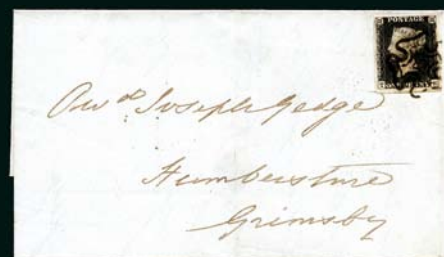 POSTAGE
ONE PENNY
Revd Joseph Gedge
Humberstone
Grimsby